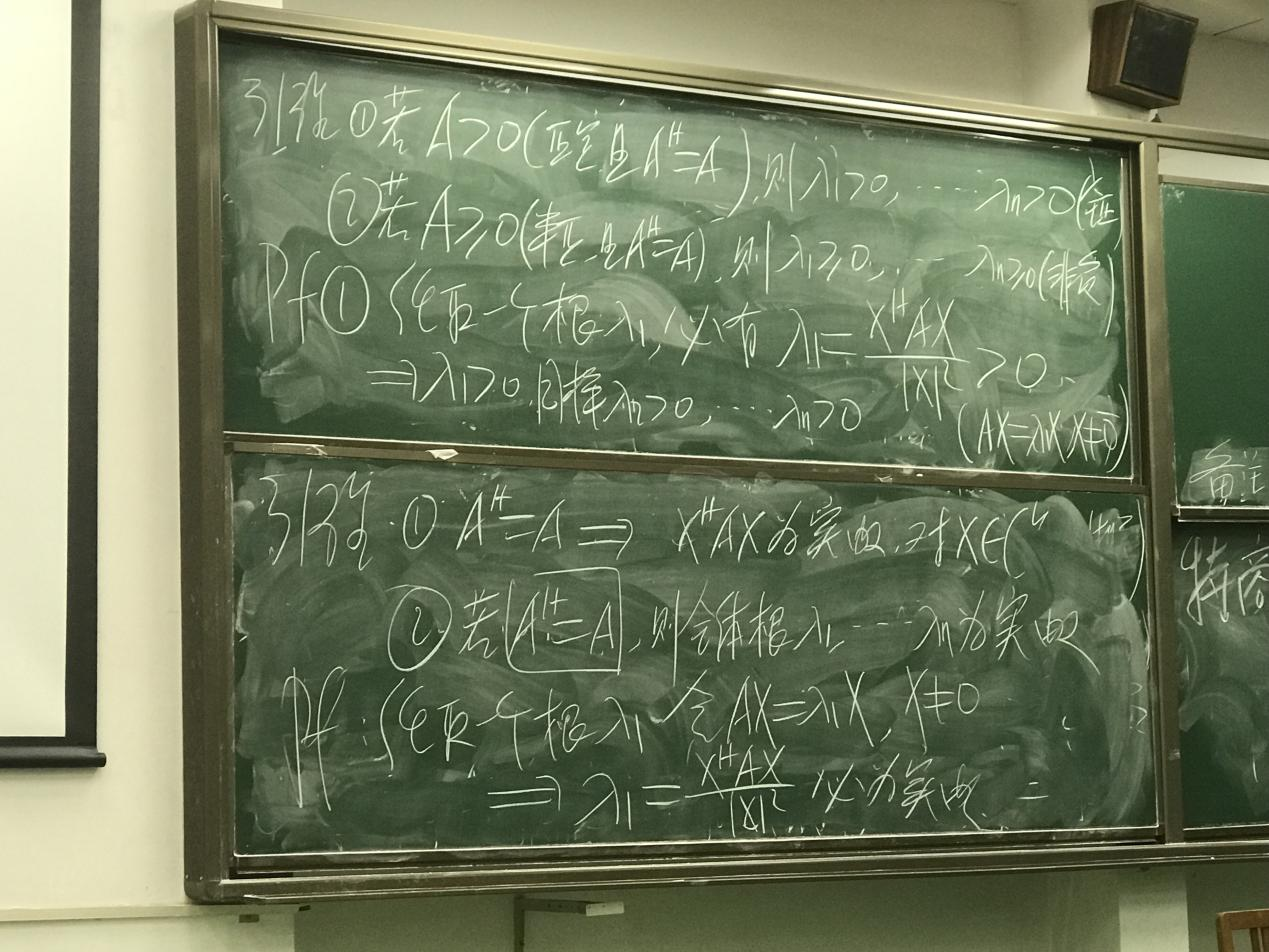 引理 ① 若 A>0(正定且 A^H=A), 则 λ1>0, ····· λn>0(全正)
② 若 A≥0(半正, 且 A^H=A), 则 λ1≥0, ··· λn≥0(非负)
Pf ① 任取一个根 λ1, 必有 λ1 = X^H AX / |X|² > 0,
⇒ λ1>0, 同样 λn>0, ···· λn>0 (AX=λ1X, X≠0)
引理 ① A^H=A ⇒ X^H AX 为实数, 对 X∈C^n
② 若 A^H=A, 则全体根 λ1, ···· λn 为实数
Pf: 任取一个根 λ1 令 AX=λ1X, X≠0
⇒ λ1 = X^H AX / |X|² 必为实数 =
备注
特商